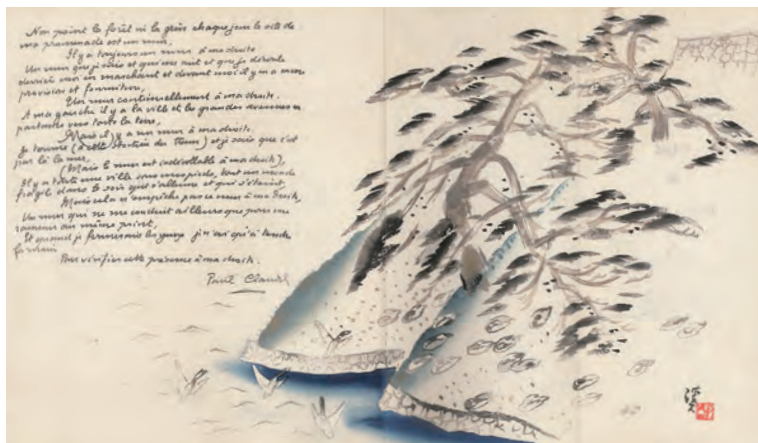 Non point la forêt ni la grève chaque jour le site de
ma promenade est un mur,
Il y a toujours un mur à ma droite
Un mur que je suis et qui me suit et que je déroule
derrière moi en marchant et devant moi il y en a encore
provision et fourniture,
Un mur continuellement à ma droite.
A ma gauche il y a la ville et les grandes avenues en
partance vers toute la terre,
Mais il y a un mur à ma droite.
Je tourne (à cette Station du Tram) et je sais que c'est
par là la mer,
(Mais le mur est indécollable à ma droite),
Il y a toute une ville sous mes pieds, tout un monde
fragile dans le soir qui s'allume et qui s'éteint,
Mais cela n'empêche pas ce mur à ma droite,
Un mur qui ne me conduit ailleurs que pour me
ramener au même point,
Et quand je fermerais les yeux je n'ai qu'à tendre
la main
Pour vérifier cette présence à ma droite.
Paul Claudel